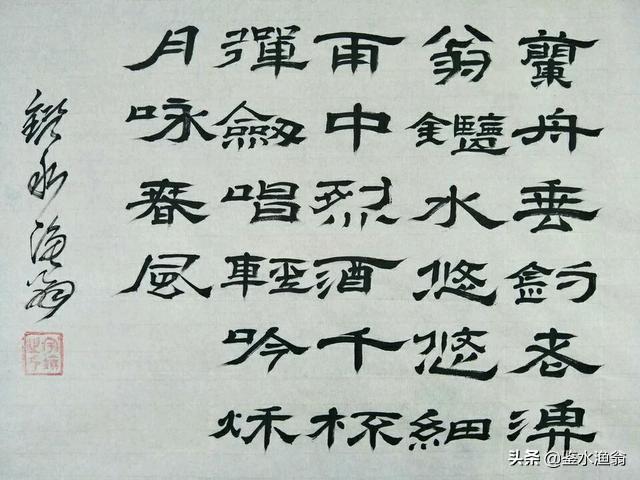 蘭舟垂釣老漁
翁鑑水悠悠細
雨中烈酒千杯
彈劔唱輕吟秋
月咏春風
鑑水漁翁
头条 @鉴水渔翁